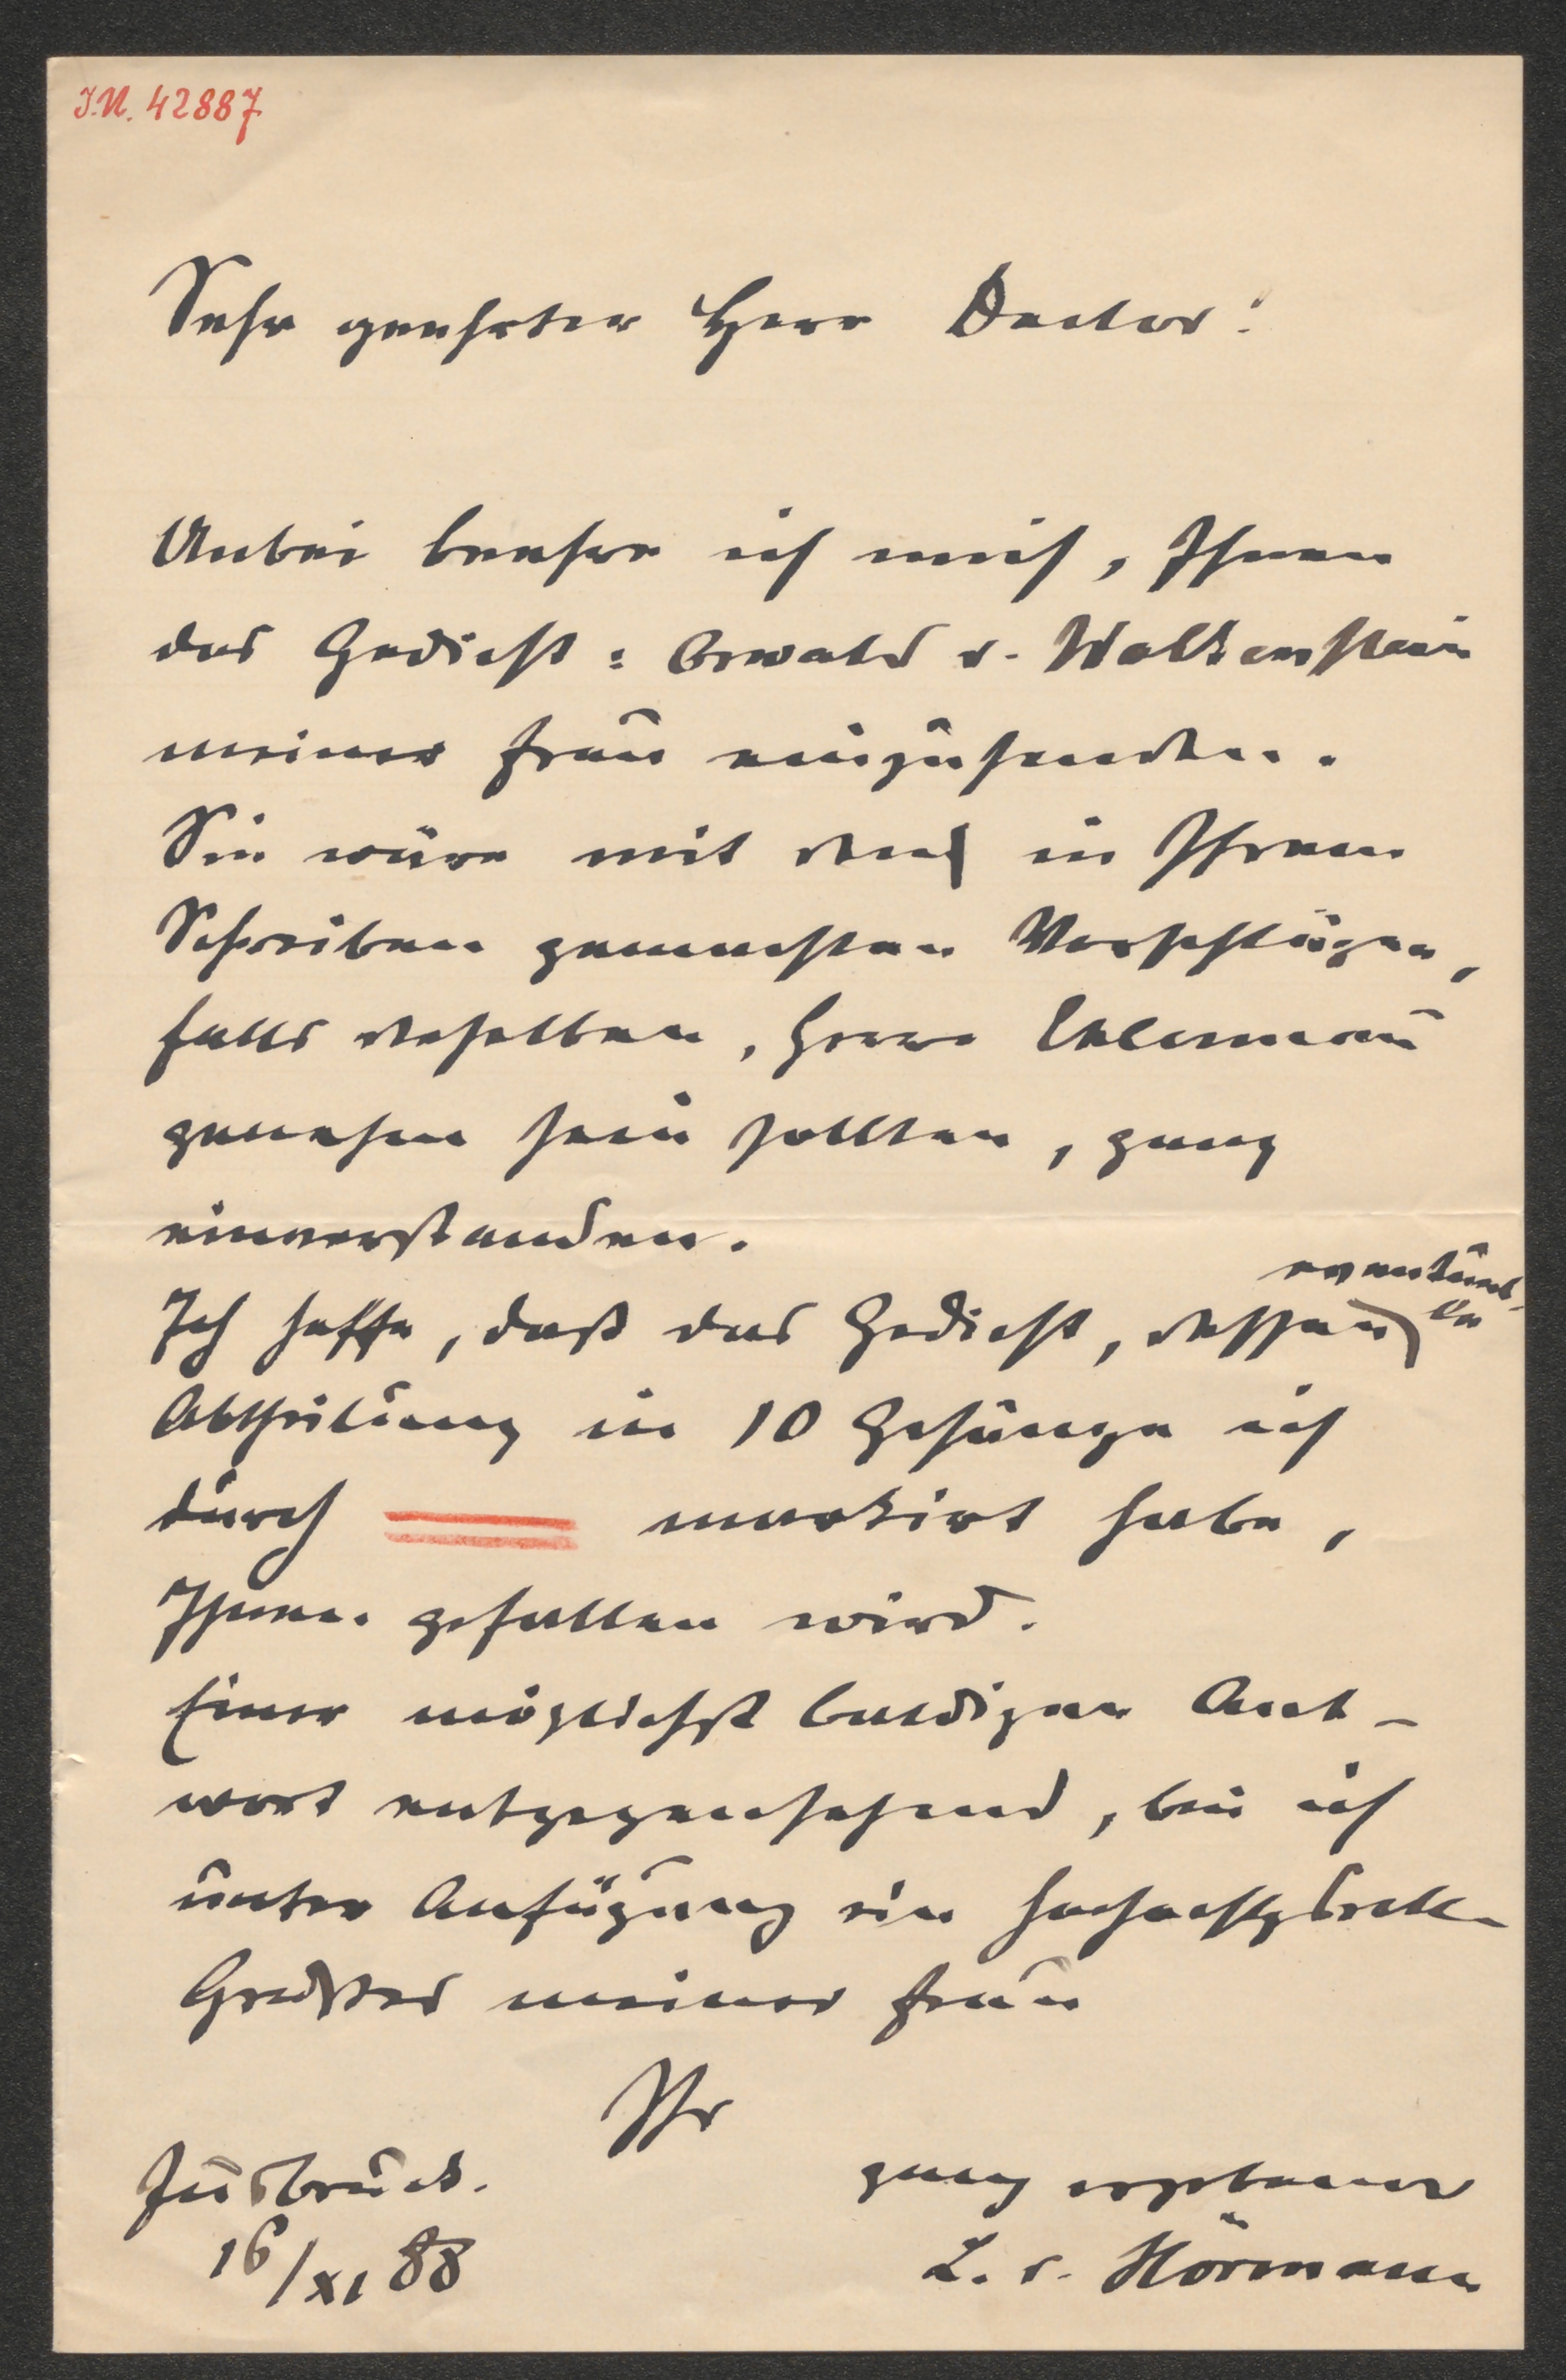 I.N. 42887
Sehr geehrter Herr Doctor!
Anbei beehre ich mich, Ihnen
das Gedicht: Oswald v. Wolkenstein
meiner Frau einzusenden.
Sie wäre mit den in Ihrem
Schreiben gemachten Vorschlägen,
falls dieselben, Herrn
genehm sein sollten, ganz
einverstanden.
Ich hoffe, daß das Gedicht, dessen eventuel-
le
Abtheilung in 10 Gesänge ich
durch markirt habe,
Ihnen gefallen wird.
Einer möglichst baldigen Ant-
wort entgegensehend, bin ich
unter Anfügung ein
Grußes meiner Frau
Ihr
ganz ergebener
L. v. Hörmann
Insbruck.
16/XI 88